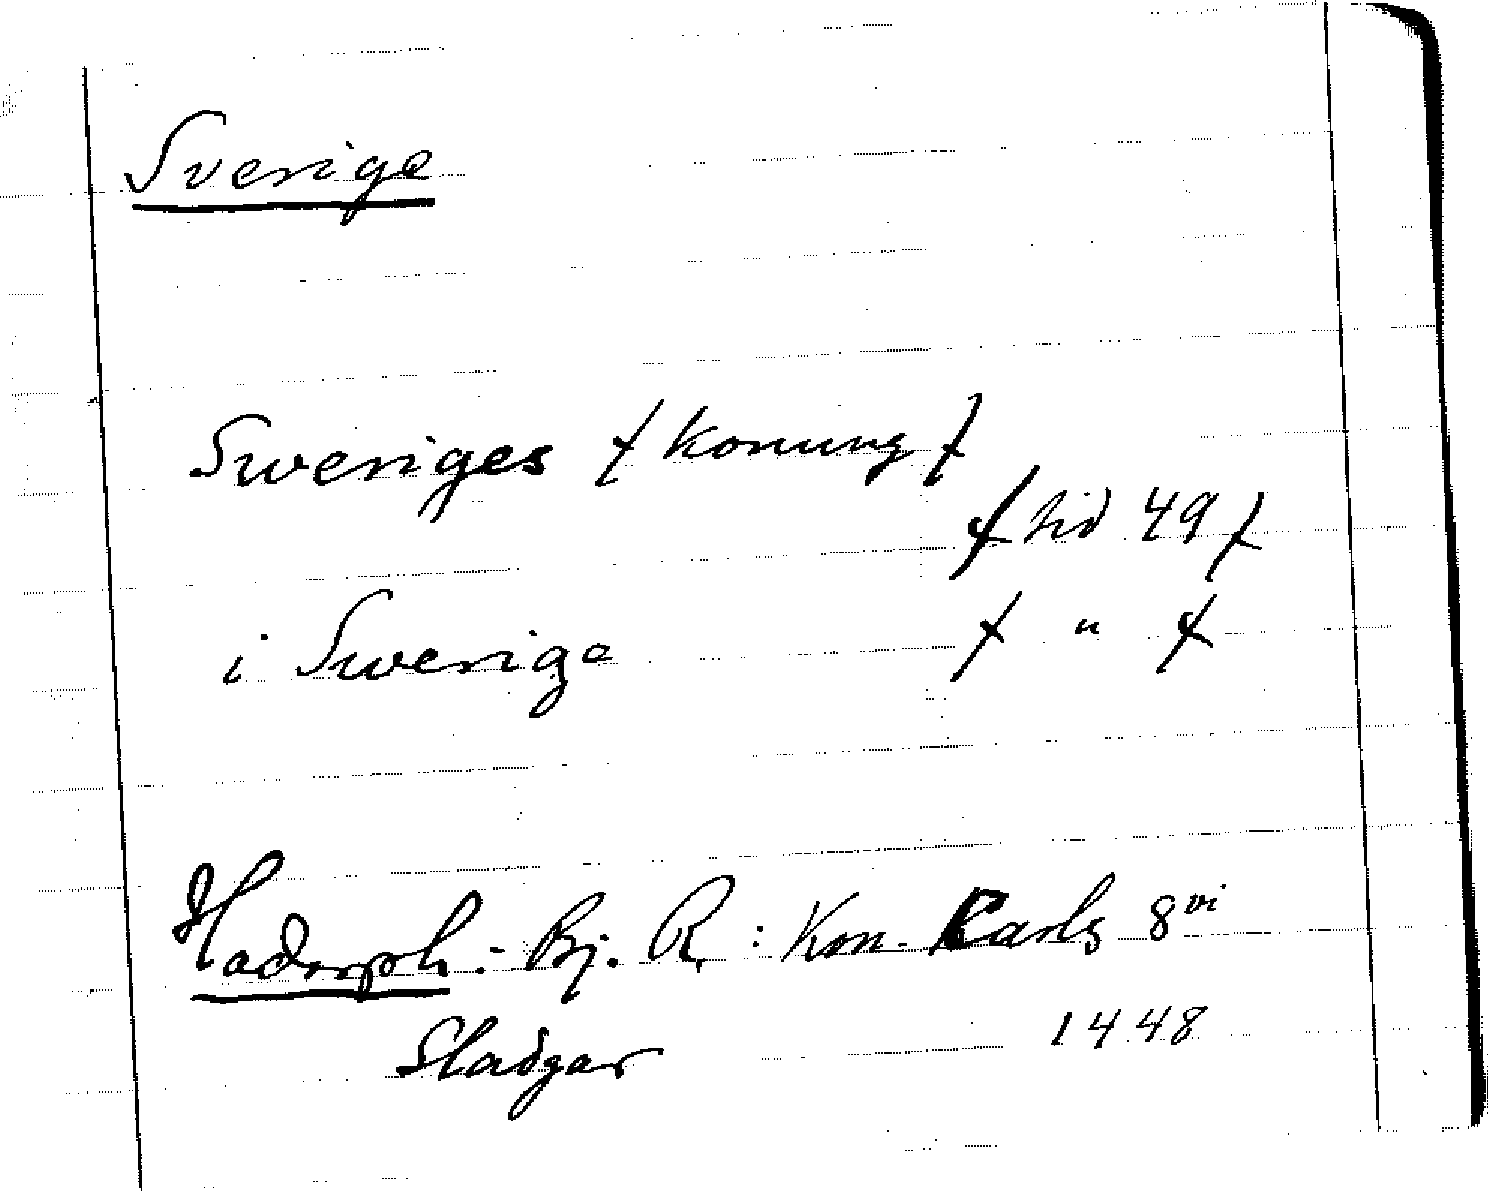 Sverige
Sweriges (Konung)
(sid 49)
i Swerige ( " )
Hadorph: Bj. R: Kon. Carls 8vi
Stadgar 1448